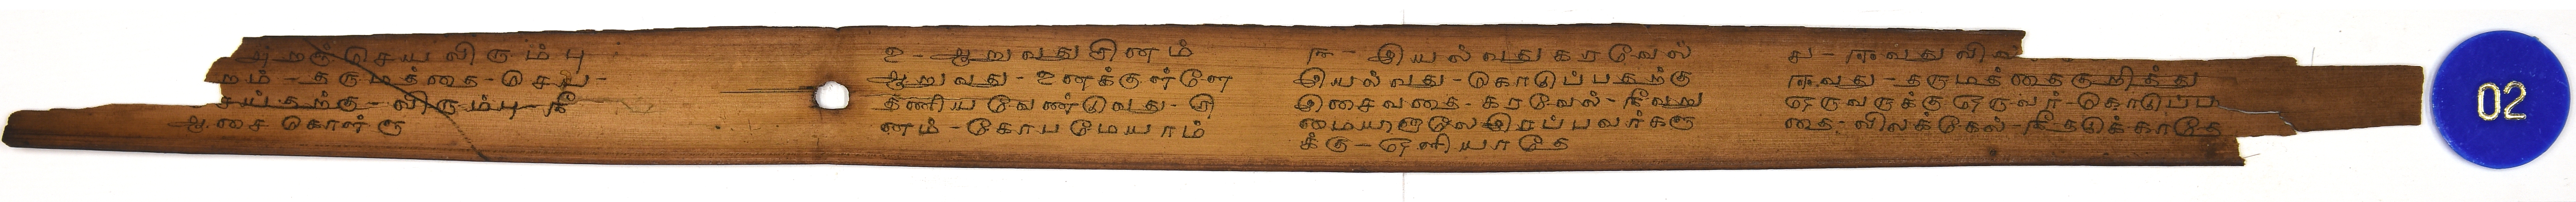 அறஞ்செயவிரும்பு
றம் - தருமத்தை - செய -
சய்தற்கு - விரும்பு - நீ
ஆசை கொள்ளு
௨ - ஆறுவதுசினம்
ஆறுவது - உனக்குள்ளே
தணிய வேண்டுவது - சி
னம் - கோபமேயாம்
௩ - இயல்வதுகரவேல்
இயல்வது - கொடுப்பதற்கு
இசைவதை - கரவேல் - நீ வறு
மையாளலே இரப்பவர்களு
க்கு - ஒளியாதே
௪ - ஈவதுவில
ஈவது - தருமத்தைகுறித்து
ஒருவருக்கு ஒருவர் - கொடுப்ப
தை - விலக்கேல் - நீ தடுக்காதே
02